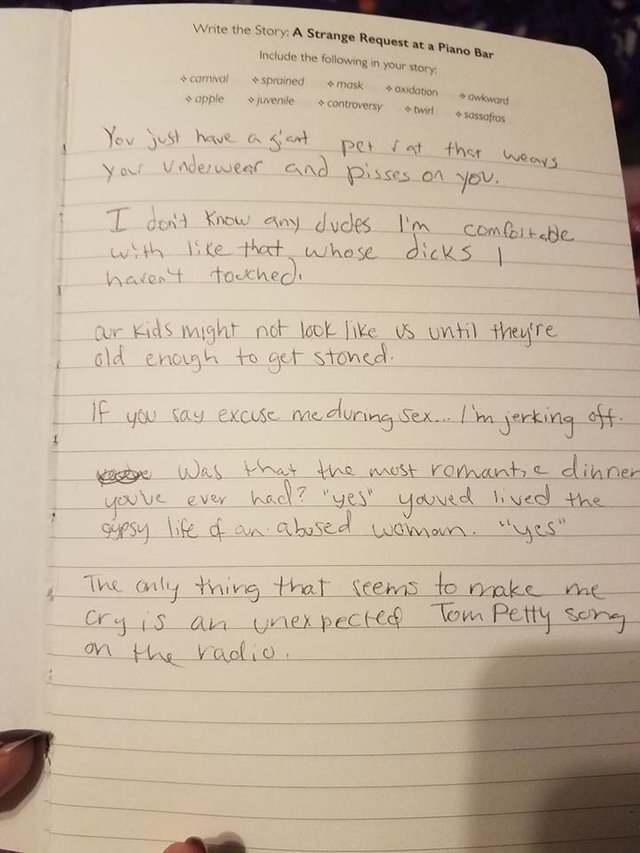 Write the Story: A Strange Request at a Piano Bar
Include the following in your story:
❖ carnival ❖ sprained ❖ mask ❖ oxidation ❖ awkward
❖ apple ❖ juvenile ❖ controversy ❖ twirl ❖ sassafras
You just have a giant pet rat that wears
your underwear and pisses on you.
I don't know any dudes I'm comfortable
with like that, whose dicks I
haven't touched.
our kids might not look like us until they're
old enough to get stoned.
If you say excuse me during sex... I'm jerking off.
Was that the most romantic dinner
you've ever had? "yes" youved lived the
gypsy life of an abused woman. "yes"
The only thing that seems to make me
cry is an unexpected Tom Petty song
on the radio.